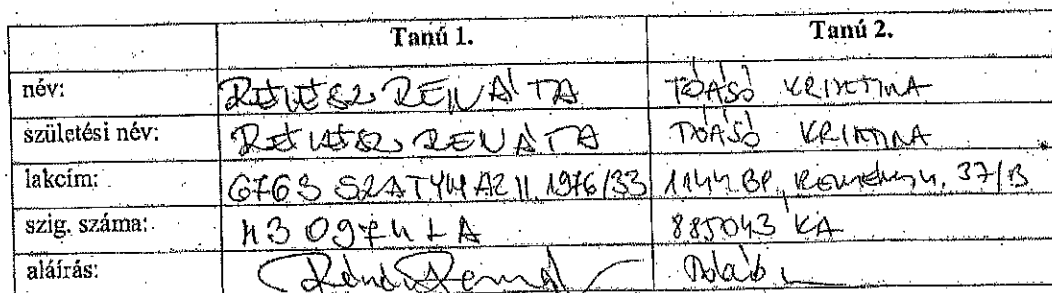 Tanú 1. Tanú 2.
név: RÉVÉSZ RENÁTA TÓÁSÓ KRISZTINA
születési név: RÉVÉSZ RENÁTA TÓÁSÓ KRISZTINA
lakcím: 6763 SZATYMAZ II. 1976/33 1144 BP, 37/B
szig. száma: 430974LA 885043 KA
aláírás: